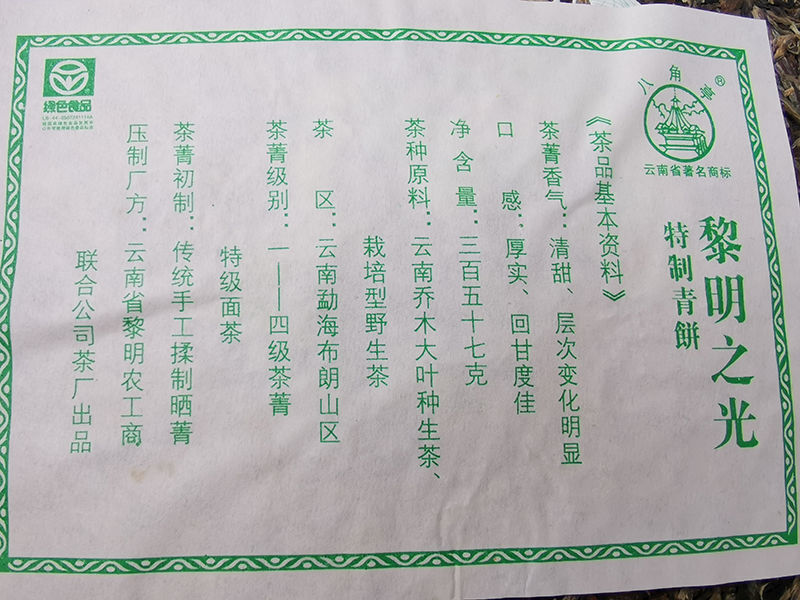 八角亭®
云南省著名商标
黎明之光
特制青餅
《茶品基本资料》
茶菁香气：清甜、层次变化明显
口感：厚实、回甘度佳
净含量：三百五十七克
茶种原料：云南乔木大叶种生茶、
栽培型野生茶
茶区：云南勐海布朗山区
茶菁级别：一——四级茶菁
特级面茶
茶菁初制：传统手工揉制晒菁
压制厂方：云南省黎明农工商
联合公司茶厂出品
绿色食品